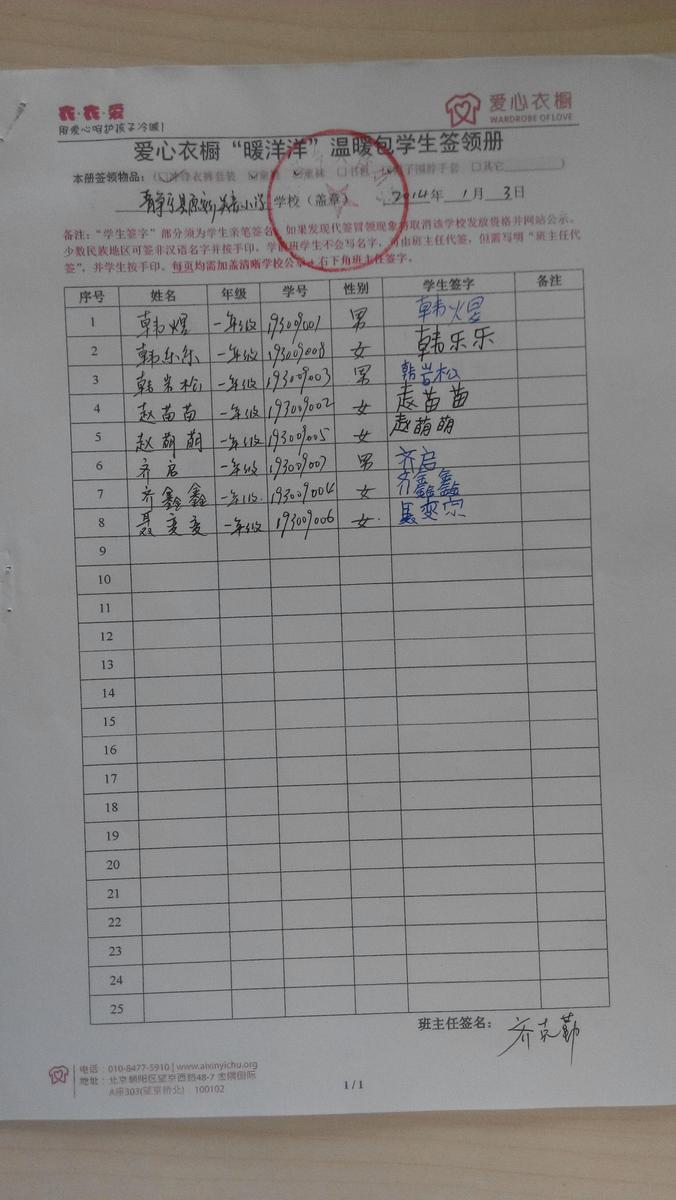 衣·衣·爱
用爱心呵护孩子冷暖!
爱心衣橱
WARDROBE OF LOVE
爱心衣橱“暖洋洋”温暖包学生签领册
本册签领物品:(□冲锋衣裤套装 童鞋 童袜 □书包 帽子围脖手套 □其它)
静宁县原安 小学 学校(盖章) 2014年 1月 3日
备注:“学生签字”部分须为学生亲笔签名,如果发现代签冒领现象将取消该学校发放资格并网站公示。
少数民族地区可签非汉语名字并按手印。学前班学生不会写名字,可由班主任代签,但需写明“班主任代
签”,并学生按手印。每页均需加盖清晰学校公章,右下角班主任签字。
序号 姓名 年级 学号 性别 学生签字 备注
1 韩煜 一年级 193009001 男 韩煜
2 韩乐乐 一年级 193009008 女 韩乐乐
3 韩岩松 一年级 193009003 男 韩岩松
4 赵苗苗 一年级 193009002 女 赵苗苗
5 赵萌萌 一年级 193009005 女 赵萌萌
6 齐启 一年级 193009007 男 齐启
7 齐鑫鑫 一年级 193009004 女 齐鑫鑫
8 聂变变 一年级 193009006 女 聂变
9
10
11
12
13
14
15
16
17
18
19
20
21
22
23
24
25
班主任签名: 齐克勤
电话:010-8477-5910 | www.aixinyichu.org
地址:北京朝阳区望京西路48-7 金隅国际
A座303(望京桥北) 100102
1 / 1